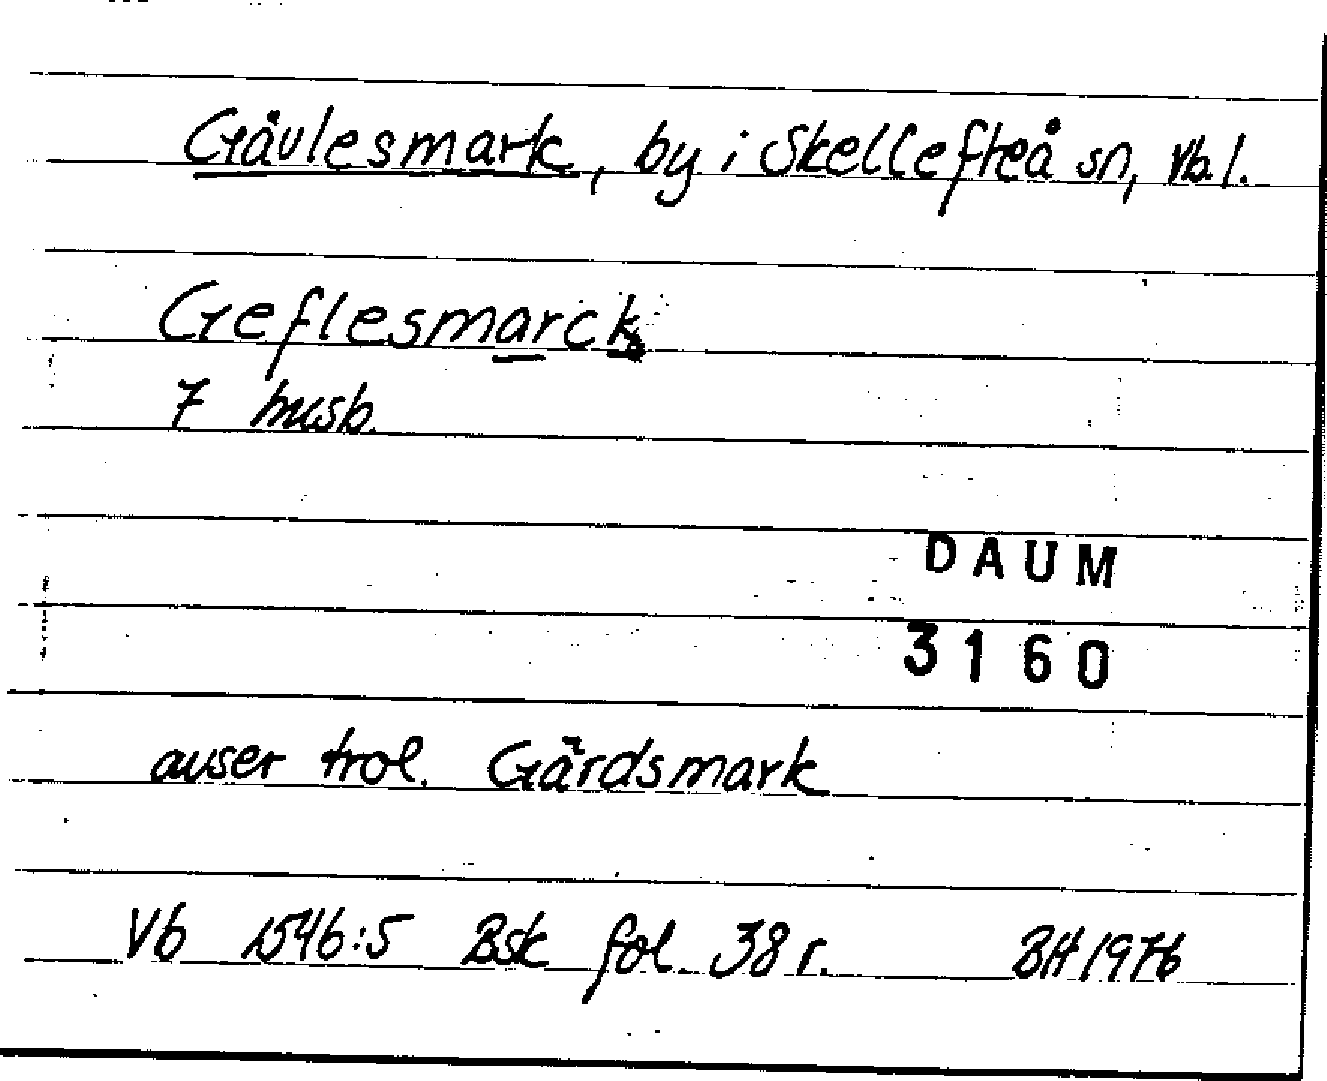 Gävlesmark, by i Skellefteå sn, Vb. l.
Geflesmarck
7 husb.
DAUM
3160
avser trol. Gärdsmark
Vb 1546:5 Bsk fol. 38 r. BH 1976